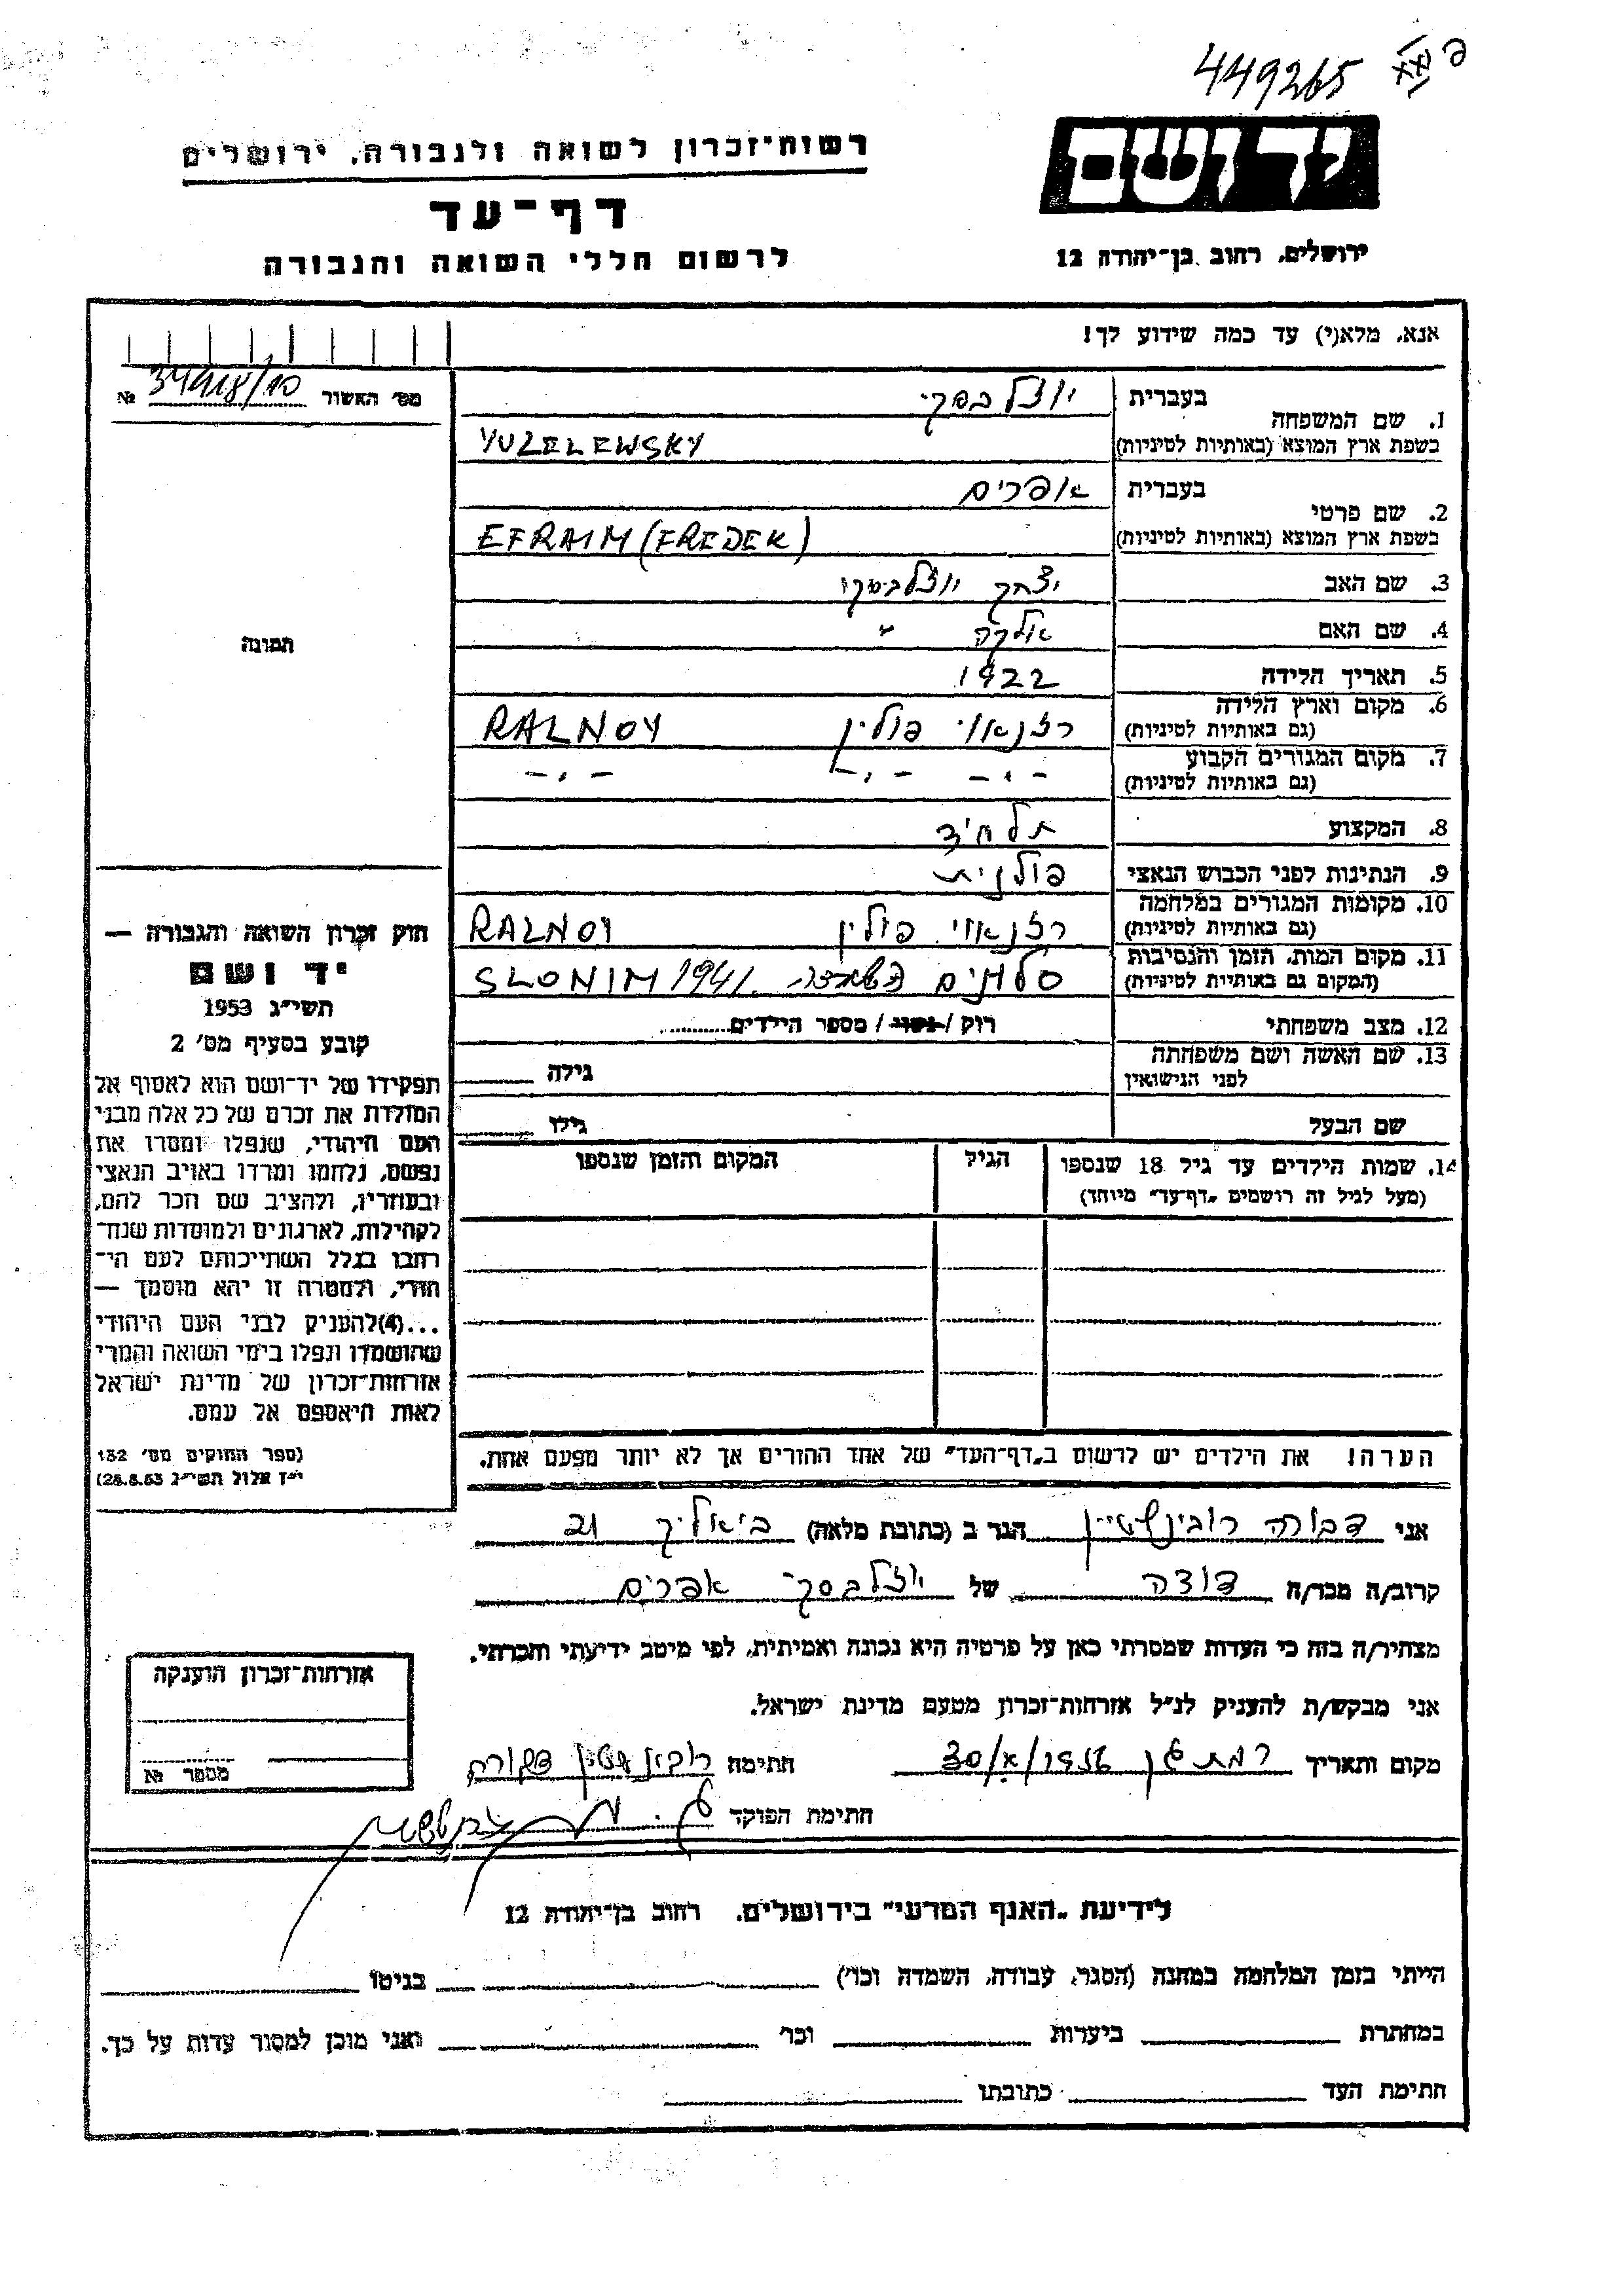 449265
רשות־זכרון לשואה ולגבורה, ירושלים
יד ושם
דף־עד
לרשום חללי השואה והגבורה
ירושלים, רחוב בן־יהודה 12
אנא, מלא(י) עד כמה שידוע לך!
מס׳ האשור 34918/10 №
1. שם המשפחה
בעברית יוזלבסקי
בשפת ארץ המוצא (באותיות לטיניות) YUZELEWSKY
2. שם פרטי
בעברית אפרים
בשפת ארץ המוצא (באותיות לטיניות) EFRAIM (FREDEK)
3. שם האב יצחק יוזלבסקי
4. שם האם אלקה "
5. תאריך הלידה 1922
6. מקום וארץ הלידה
(גם באותיות לטיניות) פולין RALNOY
7. מקום המגורים הקבוע
(גם באותיות לטיניות) - , - - , - - , -
8. המקצוע תלמיד
9. הנתינות לפני הכבוש הנאצי פולנית
10. מקומות המגורים במלחמה
(גם באותיות לטיניות) פולין RALNOY
11. מקום המות, הזמן והנסיבות
(המקום גם באותיות לטיניות) סלונים SLONIM 1941
12. מצב משפחתי רוק / נשוי / מספר הילדים
13. שם האשה ושם משפחתה
לפני הנישואין גילה
שם הבעל גילו
14. שמות הילדים עד גיל 18 שנספו
(מעל לגיל זה רושמים „דף־עד" מיוחד)
הגיל
המקום והזמן שנספו
תמונה
חוק זכרון השואה והגבורה —
יד ושם
תשי״ג 1953
קובע בסעיף מס׳ 2
תפקידו של יד־ושם הוא לאסוף אל
המולדת את זכרם של כל אלה מבני
העם היהודי, שנפלו ומסרו את
נפשם, נלחמו ומרדו באויב הנאצי
ובעוזריו, ולהציב שם וזכר להם,
לקהילות, לארגונים ולמוסדות שנח־
רבו בגלל השתייכותם לעם הי־
הודי, ולמטרה זו יהא מוסמך —
...(4)להעניק לבני העם היהודי
שהושמדו ונפלו בימי השואה והמרי
אזרחות־זכרון של מדינת ישראל
לאות היאספם אל עמם.
(ספר החוקים מס׳ 132
י״ז אלול תשי״ג 28.8.53)
הערה! את הילדים יש לרשום ב„דף־העד" של אחד ההורים אך לא יותר מפעם אחת.
אני דבורה רובינשטיין הגר ב (כתובת מלאה) ביאליק 21
קרוב/ה מכר/ה דודה של יוזלבסקי אפרים
מצהיר/ה בזה כי העדות שמסרתי כאן על פרטיה היא נכונה ואמיתית, לפי מיטב ידיעתי והכרתי.
אני מבקש/ת להעניק לנ״ל אזרחות־זכרון מטעם מדינת ישראל.
מקום ותאריך רמת גן 30/א/1956 חתימה רובינשטיין דבורה
חתימת הפוקד
אזרחות־זכרון הוענקה
מספר №
לידיעת „האגף המדעי" בירושלים, רחוב בן־יהודה 12
הייתי בזמן המלחמה במחנה (הסגר, עבודה, השמדה וכו׳) בגיטו
במחתרת ביערות וכו׳ ואני מוכן למסור עדות על כך.
חתימת העד כתובתו